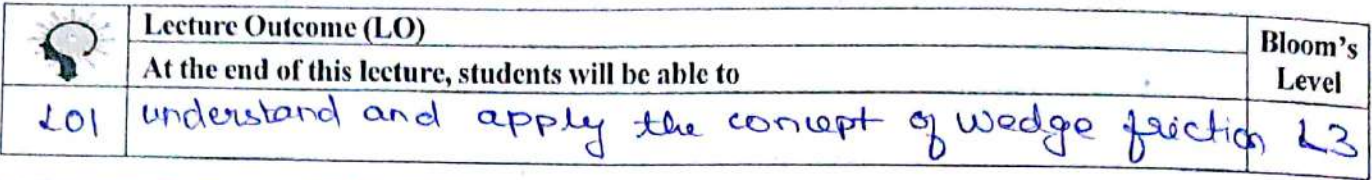 Lecture Outcome (LO)
Bloom's Level
At the end of this lecture, students will be able to
LO1 understand and apply the concept of wedge friction L3